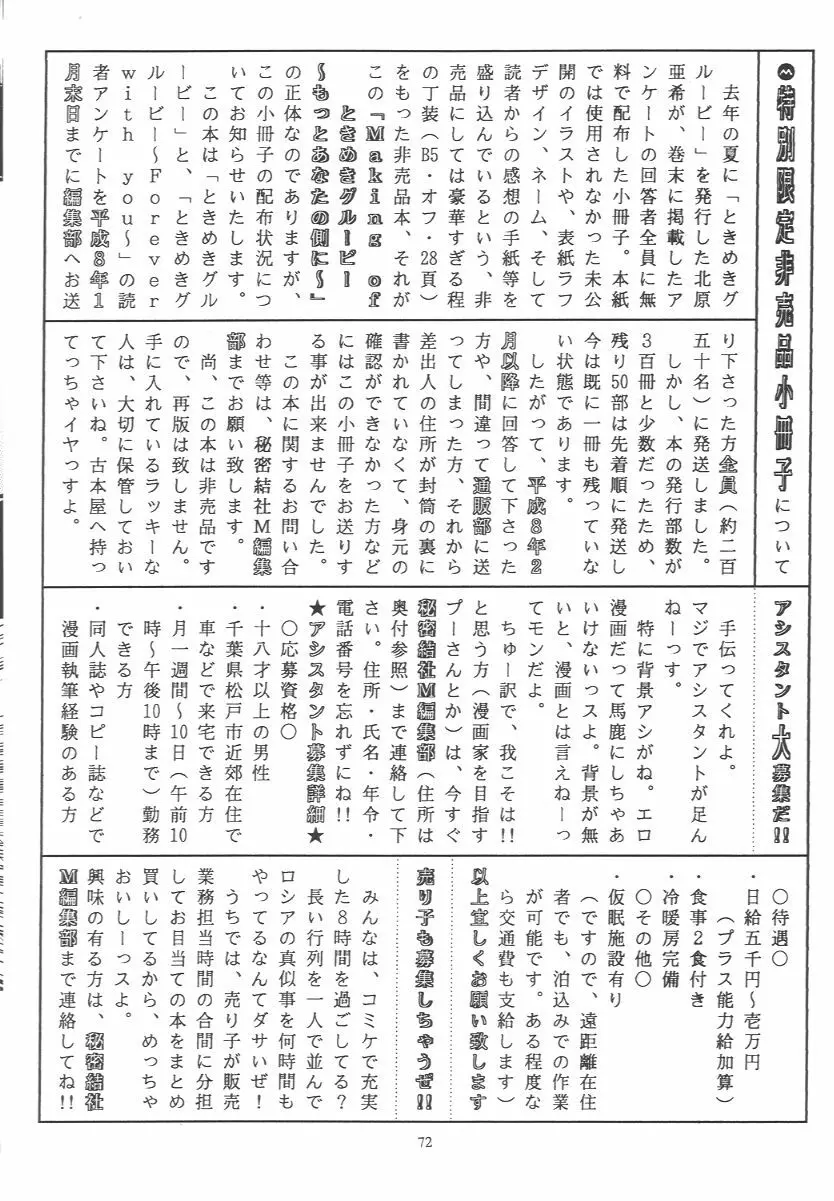 特別限定非売品小冊子について
　去年の夏に「ときめきグ
ルービー」を発行した北原
亜希が、巻末に掲載したア
ンケートの回答者全員に無
料で配布した小冊子。本紙
では使用されなかった未公
開のイラストや、表紙ラフ
デザイン、ネーム、そして
読者からの感想の手紙等を
盛り込んでいるという、非
売品にしては豪華すぎる程
の丁装（B5・オフ・28頁）
をもった非売品本、それが
この『Making of
　ときめきグルービー
～もっとあなたの側に～』
の正体なのでありますが、
この小冊子の配布状況につ
いてお知らせいたします。
　この本は「ときめきグル
ービー」と、「ときめきグ
ルービー～Forever
with you～」の読
者アンケートを平成8年1
月末日までに編集部へお送
り下さった方全員（約二百
五十名）に発送しました。
　しかし、本の発行部数が
3百冊と少数だったため、
残り50部は先着順に発送し
今は既に一冊も残っていな
い状態であります。
　したがって、平成8年2
月以降に回答して下さった
方や、間違って通販部に送
ってしまった方、それから
差出人の住所が封筒の裏に
書かれていなくて、身元の
確認ができなかった方など
にはこの小冊子をお送りす
る事が出来ませんでした。
　この本に関するお問い合
わせ等は、秘密結社M編集
部までお願い致します。
　尚、この本は非売品です
ので、再版は致しません。
手に入れているラッキーな
人は、大切に保管しておい
て下さいね。古本屋へ持っ
てっちゃイヤっすよ。
アシスタント大募集だ!!
　手伝ってくれよ。
マジでアシスタントが足ん
ねーっす。
　特に背景アシがね。エロ
漫画だって馬鹿にしちゃあ
いけないっスよ。背景が無
いと、漫画とは言えねーっ
てモンだよ。
　ちゅー訳で、我こそは!!
と思う方（漫画家を目指す
プーさんとか）は、今すぐ
秘密結社M編集部（住所は
奥付参照）まで連絡して下
さい。住所・氏名・年令・
電話番号を忘れずにね!!
★アシスタント募集詳細★
　○応募資格○
・十八才以上の男性
・千葉県松戸市近郊在住で
　車などで来宅できる方
・月一週間～10日（午前10
　時～午後10時まで）勤務
　できる方
・同人誌やコピー誌などで
　漫画執筆経験のある方
　○待遇○
・日給五千円～壱万円
　　（プラス能力給加算）
・食事2食付き
・冷暖房完備
　○その他○
・仮眠施設有り
　（ですので、遠距離在住
　者でも、泊込みでの作業
　が可能です。ある程度な
　ら交通費も支給します）
以上宜しくお願い致します
売り子も募集しちゃうぜ!!
　みんなは、コミケで充実
した8時間を過ごしてる？
　長い行列を一人で並んで
ロシアの真似事を何時間も
やってるなんてダサいぜ！
　うちでは、売り子が販売
業務担当時間の合間に分担
してお目当ての本をまとめ
買いしてるから、めっちゃ
おいしーっスよ。
興味の有る方は、秘密結社
M編集部まで連絡してね!!
72